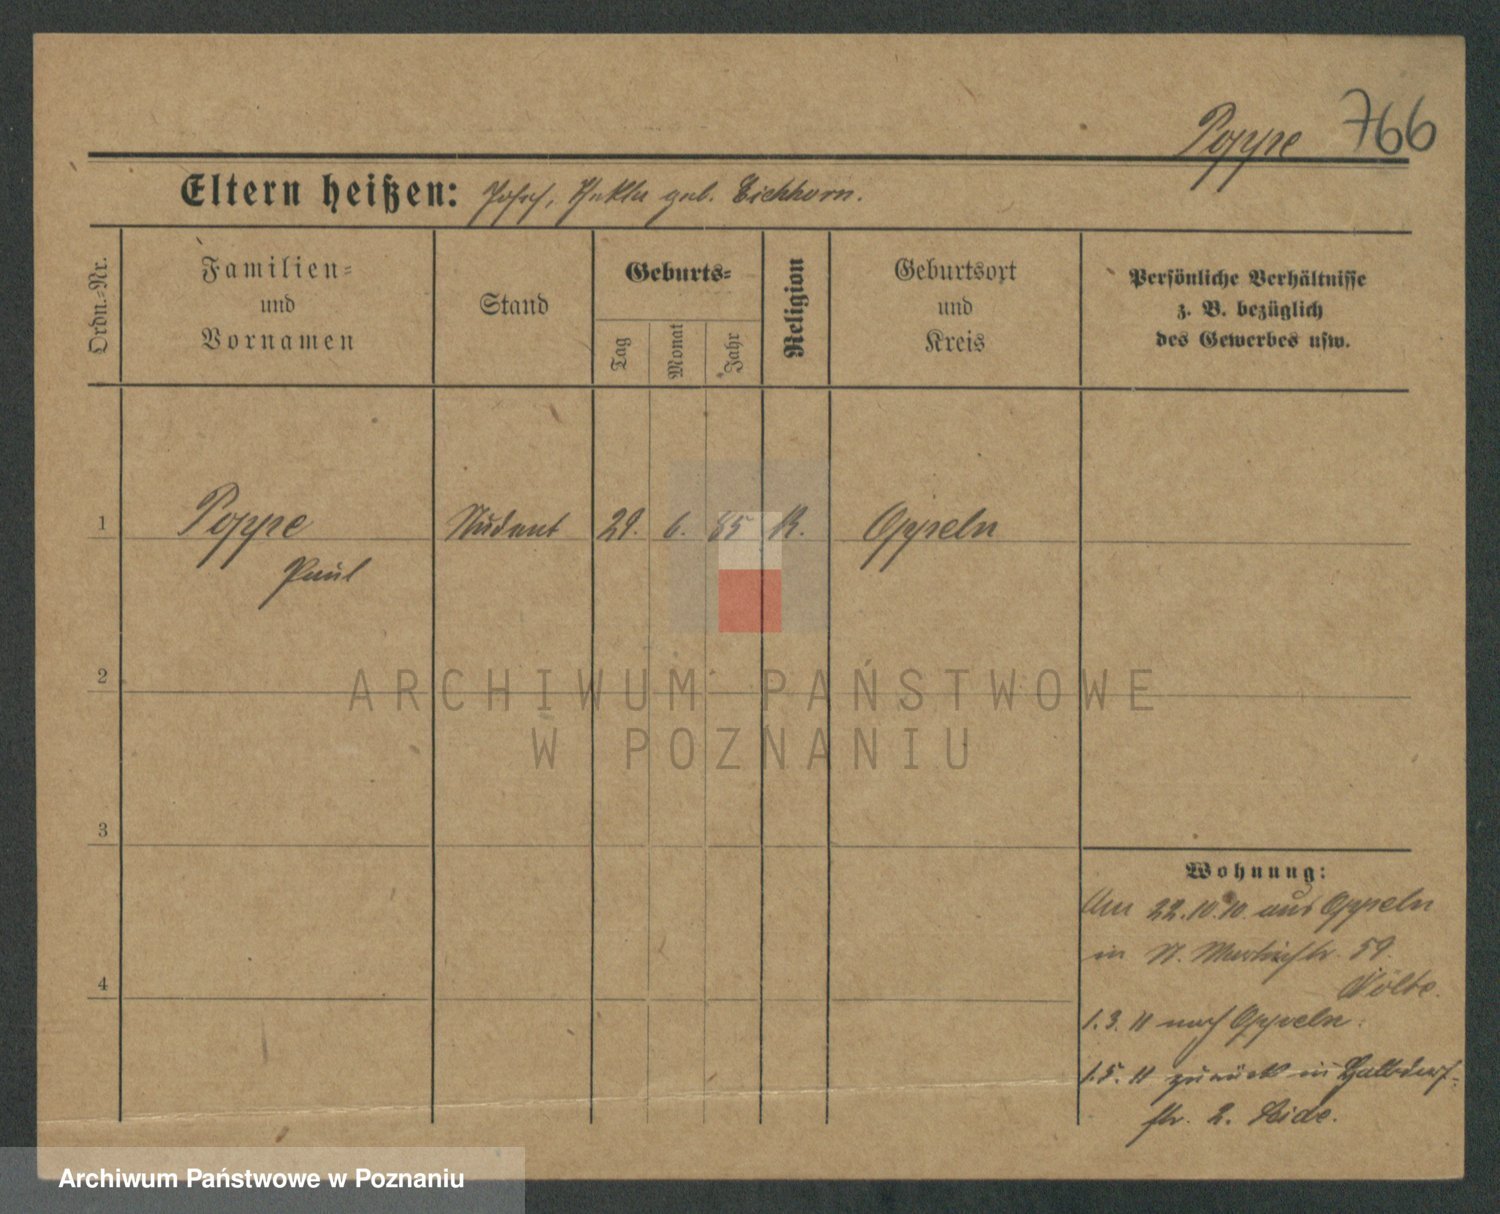 Poppe 766
Eltern heißen: Josef, Thekla geb. Eichhorn.
Ordn.-Nr.
Familien-
und
Vornamen
Stand
Geburts-
Tag
Monat
Jahr
Religion
Geburtsort
und
Kreis
Persönliche Verhältnisse
z. B. bezüglich
des Gewerbes usw.
1 Poppe Student 29. 6. 85 K. Oppeln
Paul
2
ARCHIWUM PAŃSTWOWE
W POZNANIU
3
Wohnung:
Am 22.10.10. aus Oppeln
in St. Martinstr. 59.
Nölte.
4
1.3.11 nach Oppeln.
1.5.11 zurück in
str. 2.
Archiwum Państwowe w Poznaniu